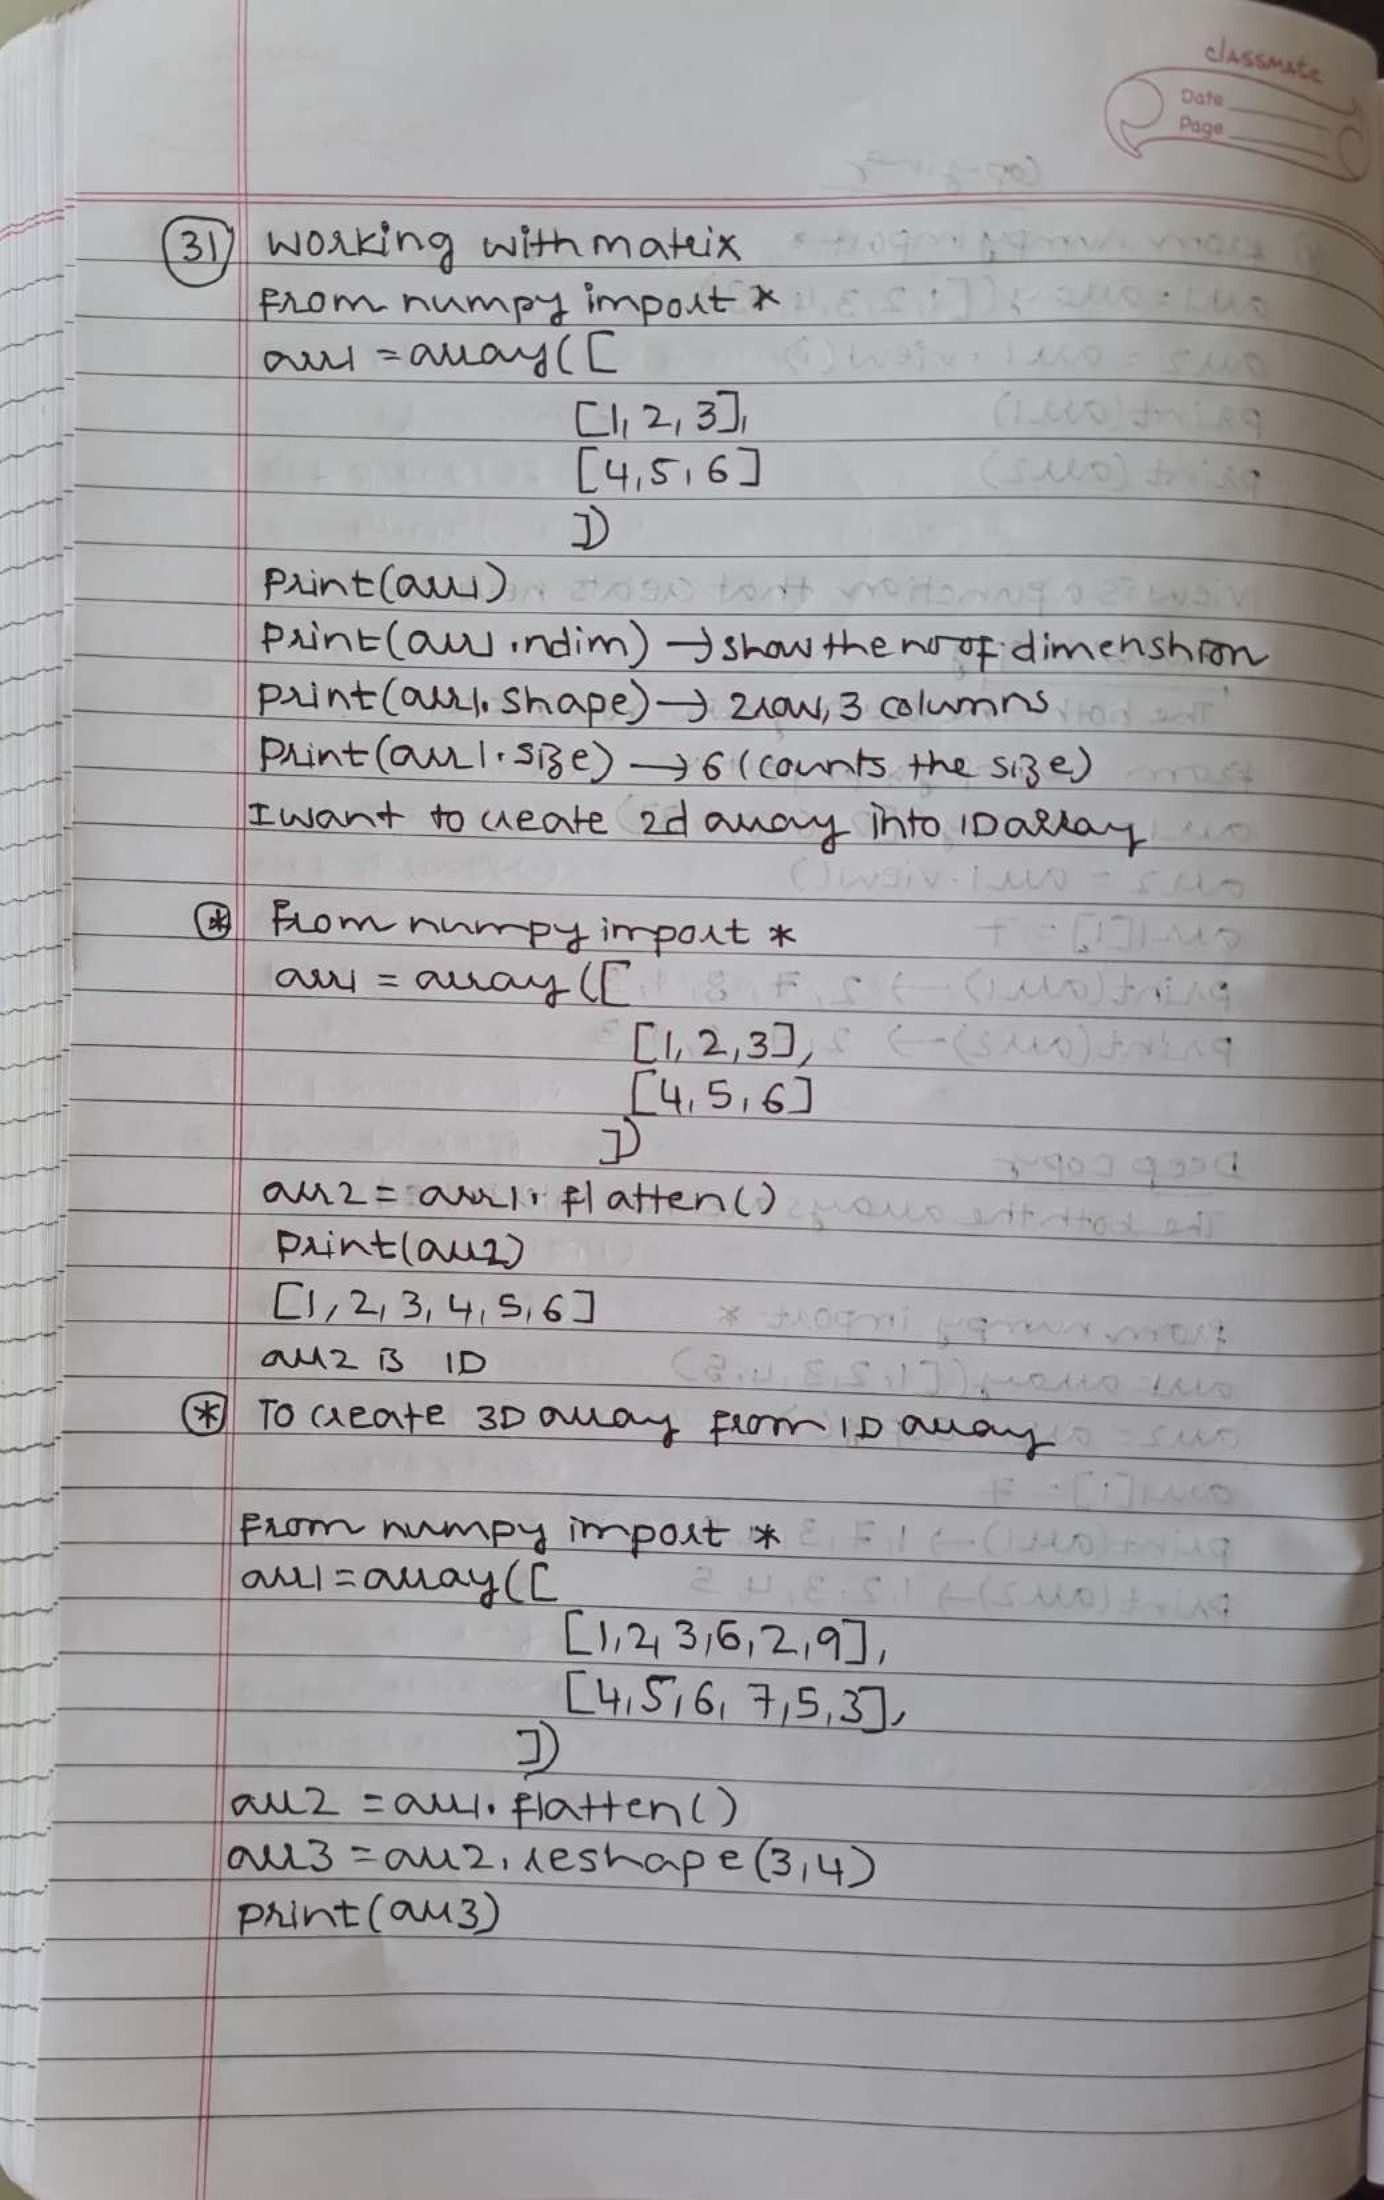 classmate
Date
Page
31 working with matrix
from numpy import *
arr1 = array([
[1, 2, 3],
[4, 5, 6]
])
print(arr1)
print(arr1.ndim) → show the no of dimenshion
print(arr1.shape) → 2 row, 3 columns
print(arr1.size) → 6 (counts the size)
I want to create 2d array into 1D array
* from numpy import *
arr1 = array([
[1, 2, 3],
[4, 5, 6]
])
arr2 = arr1.flatten()
print(arr2)
[1, 2, 3, 4, 5, 6]
arr2 is 1D
* To create 3D array from 1D array
from numpy import *
arr1 = array([
[1, 2, 3, 6, 2, 9],
[4, 5, 6, 7, 5, 3],
])
arr2 = arr1.flatten()
arr3 = arr2.reshape(3,4)
print(arr3)